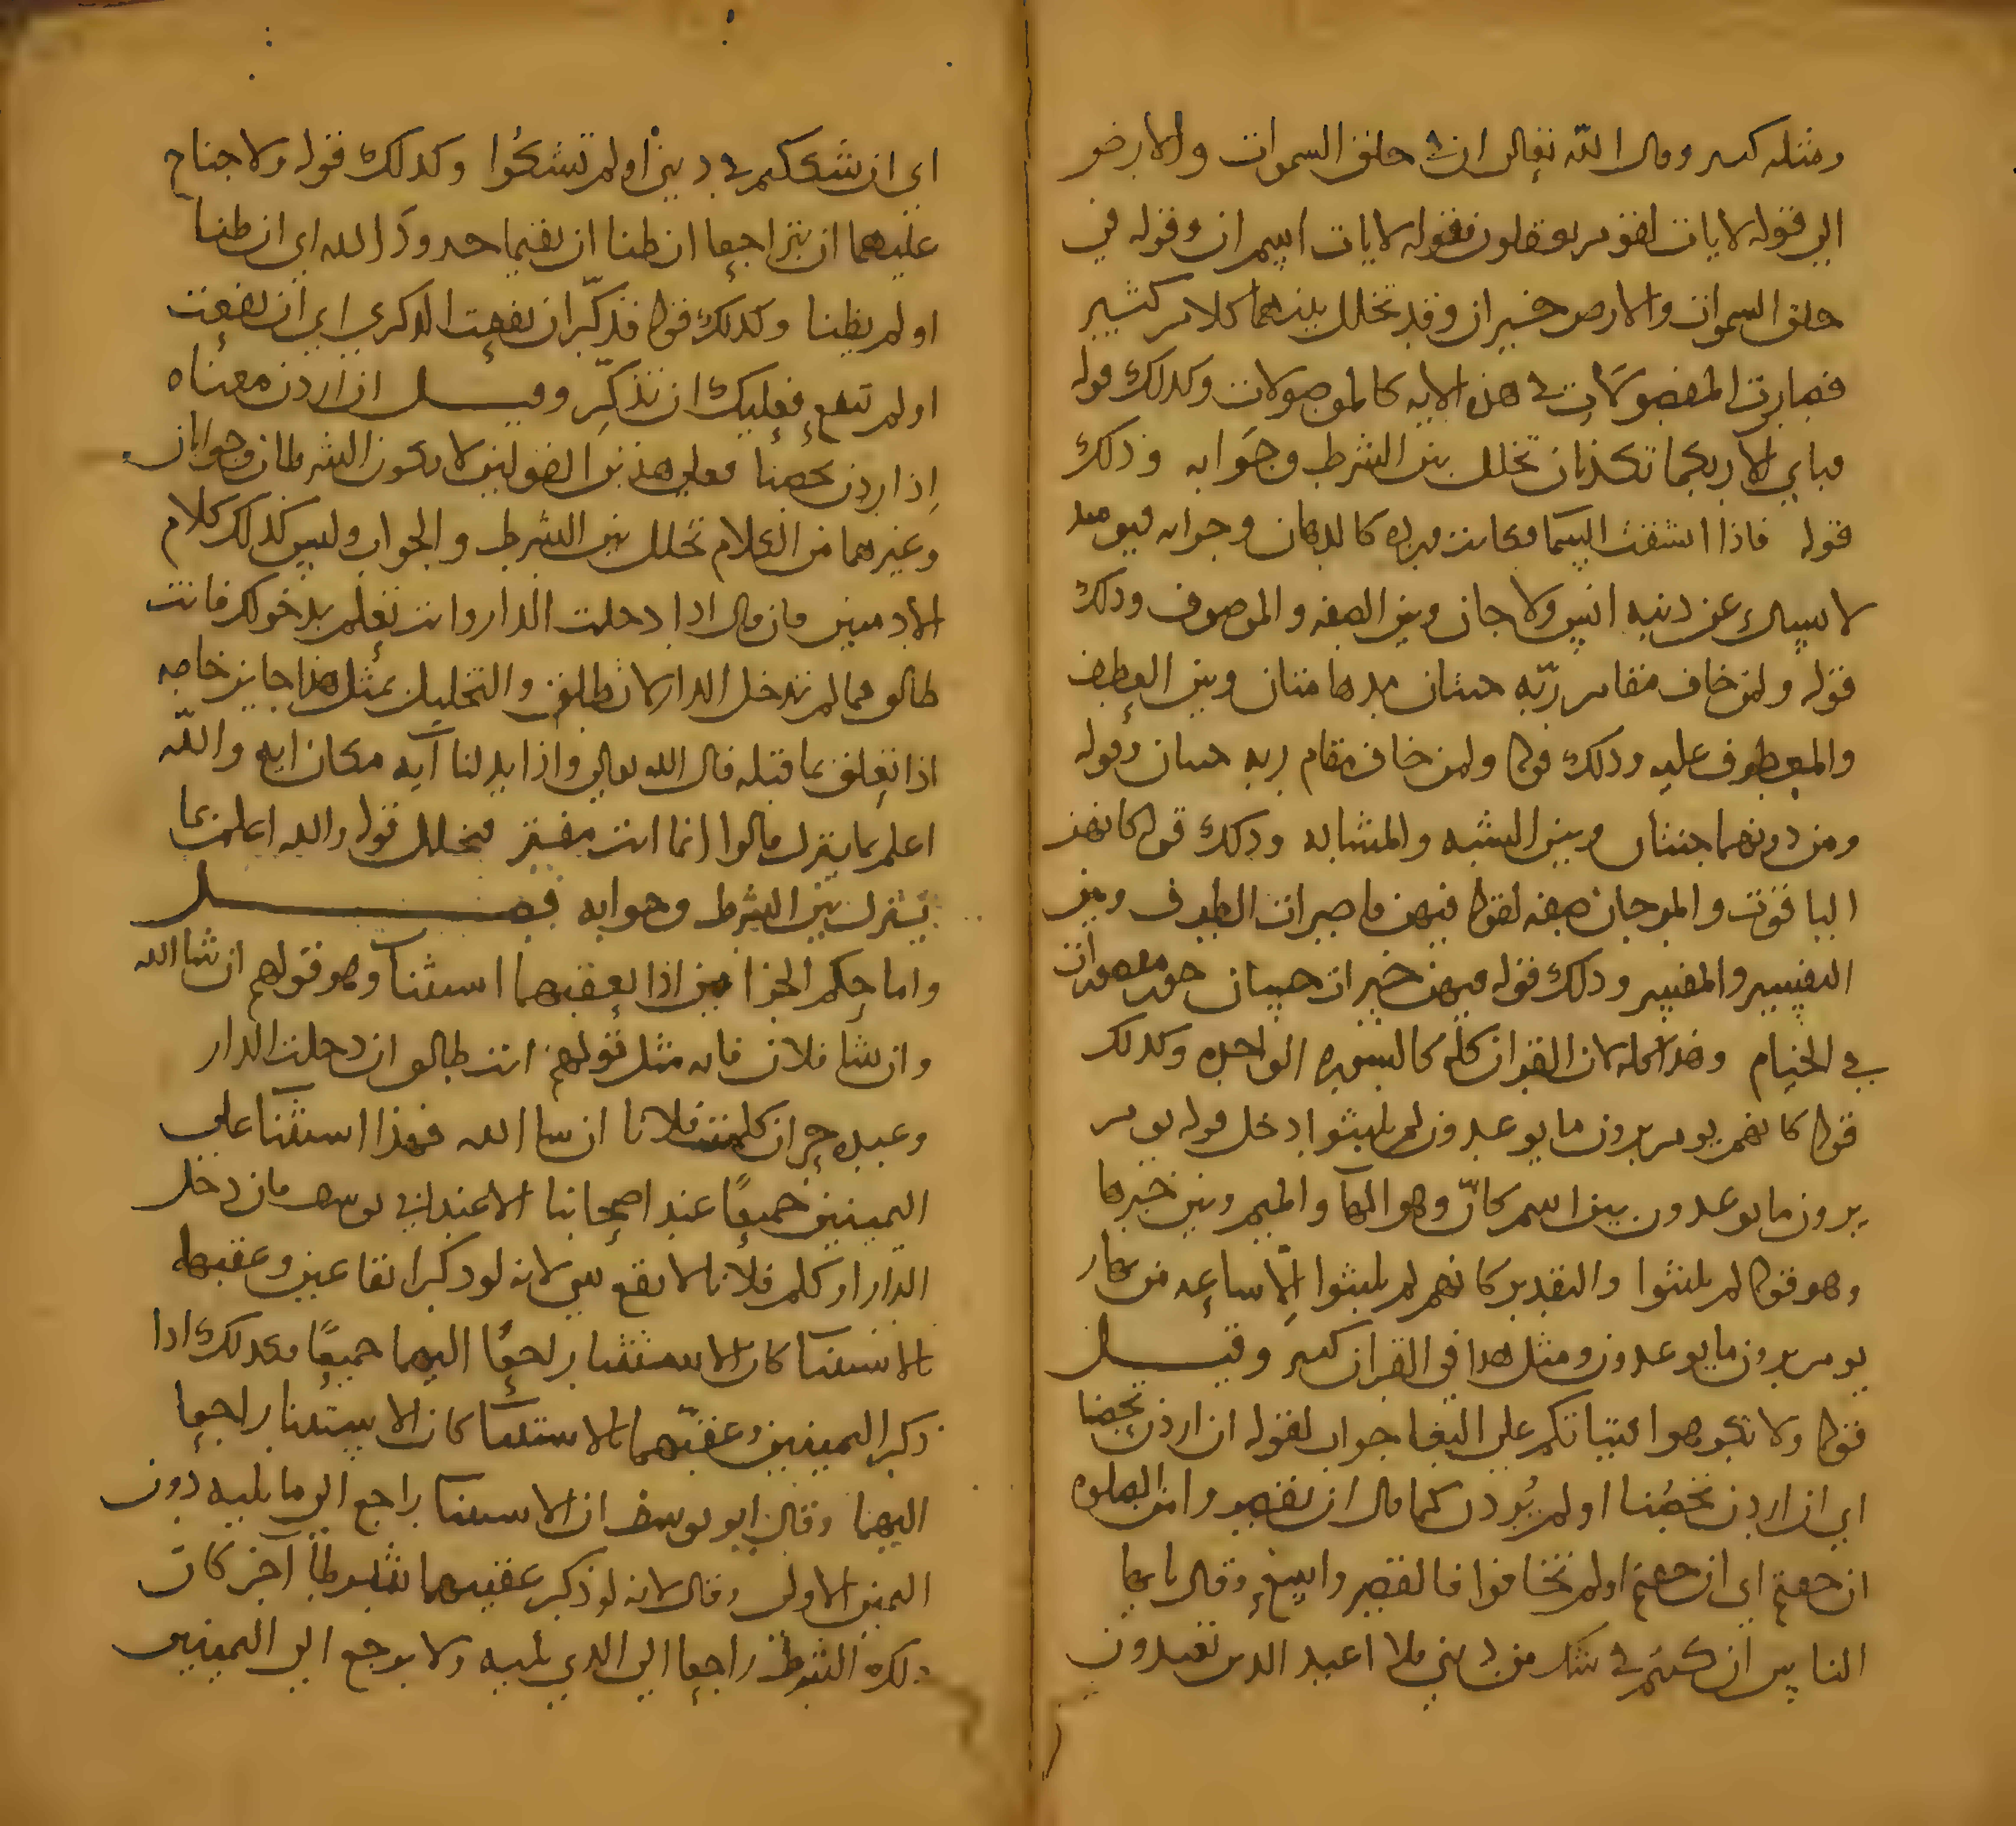 ومثله كثير وقال الله تعالى ان في خلق السموات والارض
الى قوله لايات لقوم يعقلون فقوله لايات اسم ان وقوله في
خلق السموات والارض خبر ان وقد تخلل بينهما كلام كثير
فصارت المفصولات في هذه الايه كالموصولات وكذلك قوله
فباي الا ربكما تكذبان تخلل بين الشرط وجوابه وذلك
قوله فاذا انشقت السما فكانت ورده كالدهان وجوابه فيومئذ
لا يسال عن ذنبه انس ولا جان وبين الصفه والموصوف وذلك
قوله ولمن خاف مقام ربّه جنتان مدهامتان وبين العطف
والمعطوف عليه وذلك قوله ولمن خاف مقام ربه جنتان وقوله
ومن دونهما جنتان وبين المشبه والمشابه وذلك قوله كانهن
الياقوت والمرجان صفه لقوله فيهن قاصرات الطرف وبين
التفسير والمفسر وذلك قوله فيهن خيرات حسان حور مقصورات
في الخيام وهذا كله لان القران كله كالسوره الواحده وكذلك
قوله كانهم يوم يرون ما يوعدون لم يلبثوا ادخل قوله يوم
يرون ما يوعدون بين اسم كانّ وهو الهآ والميم وبين خبرها
وهو قوله لم يلبثوا والتقدير كانهم لم يلبثوا الّا ساعه من نهار
يوم يرون ما يوعدون ومثل هذا في القران كثير وقيل
قوله ولا تكرهوا فتياتكم على البغا جواب لقوله ان اردن تحصنا
اي ان اردن تحصُنا او لم يُردن كما قال ان تقصروا من الصلوه
ان خفتم اي ان خفتم او لم تخافوا فالقصر واسع وقال يا ايها
الناس ان كنتم في شك من ديني فلا اعبد الذين تعبدون
اي ان شككتم في ديني او لم تشكُوا وكذلك قوله ولا جناح
عليهما ان يتراجعا ان ظنا ان يقيما حدودَ الله اي ان ظنا
او لم يظنا وكذلك قوله فذكّر ان نفعت الذكرى اي ان نفعت
او لم تنفع فعليك ان تذكِّر وقيل ان اردن معناه
اِذ اردن تحصنا فعلى هذين القولين لا يكون الشرطان وجوابان
وغيرهما من الكلام تخلل بين الشرط والجواب وليس كذلك كلام
الادميين فان قال اذا دخلت الدار وانت تعلم بدخولك فانت
طالق فما لم تدخل الدار لا تطلق والتخليل بمثل هذا جايز خاصه
اذا تعلق بما قبله قال الله تعالى واذا بدلنا آيه مكان ايه والله
اعلم بما ينزل قالوا انما انت مفتر فتخلل قوله والله اعلم بما
ينزل بين الشرط وجوابه فصل
واما حكم الجزا مين اذا يعقبهما استثنآ وهو قولهم ان شا الله
وان شا فلان فانه مثل قولهم انت طالق ان دخلت الدار
وعبده حر ان كلمت فلانا ان شا الله فهذا استثنآ على
اليمينين جميعًا عند اصحابنا الا عند ابي يوسف فان دخل
الدار او كلم فلانا لا يقع شي لانه لو ذكر ايقاعين وعقبهما
بالاستثنا كان الاستثنا راجعًا اليهما جميعًا فكذلك اذا
ذكر اليمينين وعقبّهما بالاستثنآ كان الاستثنا راجعا
اليهما وقال ابو يوسف ان الاستثنا راجع الى ما يليه دون
اليمين الاولى وقال لانه لو ذكر عقيبهما شرطًا آخر كان
ذلك الشرط راجعا الى الذي يليه ولا يرجع الى اليمينين